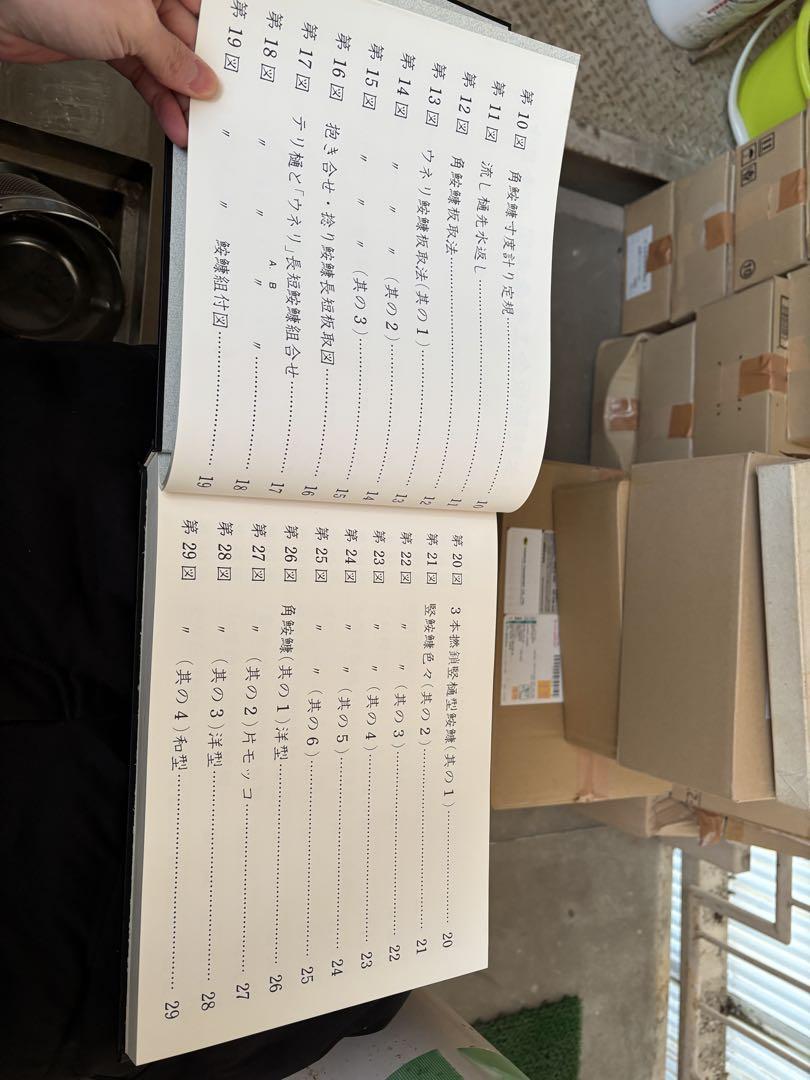 第10図 角鮟鱇寸度計り定規…………10
第11図 流し樋先水返し…………11
第12図 角鮟鱇板取法…………12
第13図 ウネリ鮟鱇板取法(其の1)…………13
第14図 〃 〃 〃 (其の2)…………14
第15図 〃 〃 〃 (其の3)…………15
第16図 抱き合せ・捻り鮟鱇長短板取図…………16
第17図 テリ樋と「ウネリ」長短鮟鱇組合せ…………17
A B
第18図 〃 〃 〃 〃…………18
第19図 〃 〃 鮟鱇組付図…………19
第20図 3本撚鎖竪樋型鮟鱇(其の1)…………20
第21図 竪鮟鱇色々(其の2)…………21
第22図 〃 〃 (其の3)…………22
第23図 〃 〃 (其の4)…………23
第24図 〃 〃 (其の5)…………24
第25図 〃 〃 (其の6)…………25
第26図 角鮟鱇(其の1)洋型…………26
第27図 〃 (其の2)片モッコ…………27
第28図 〃 (其の3)洋型…………28
第29図 〃 (其の4)和型…………29